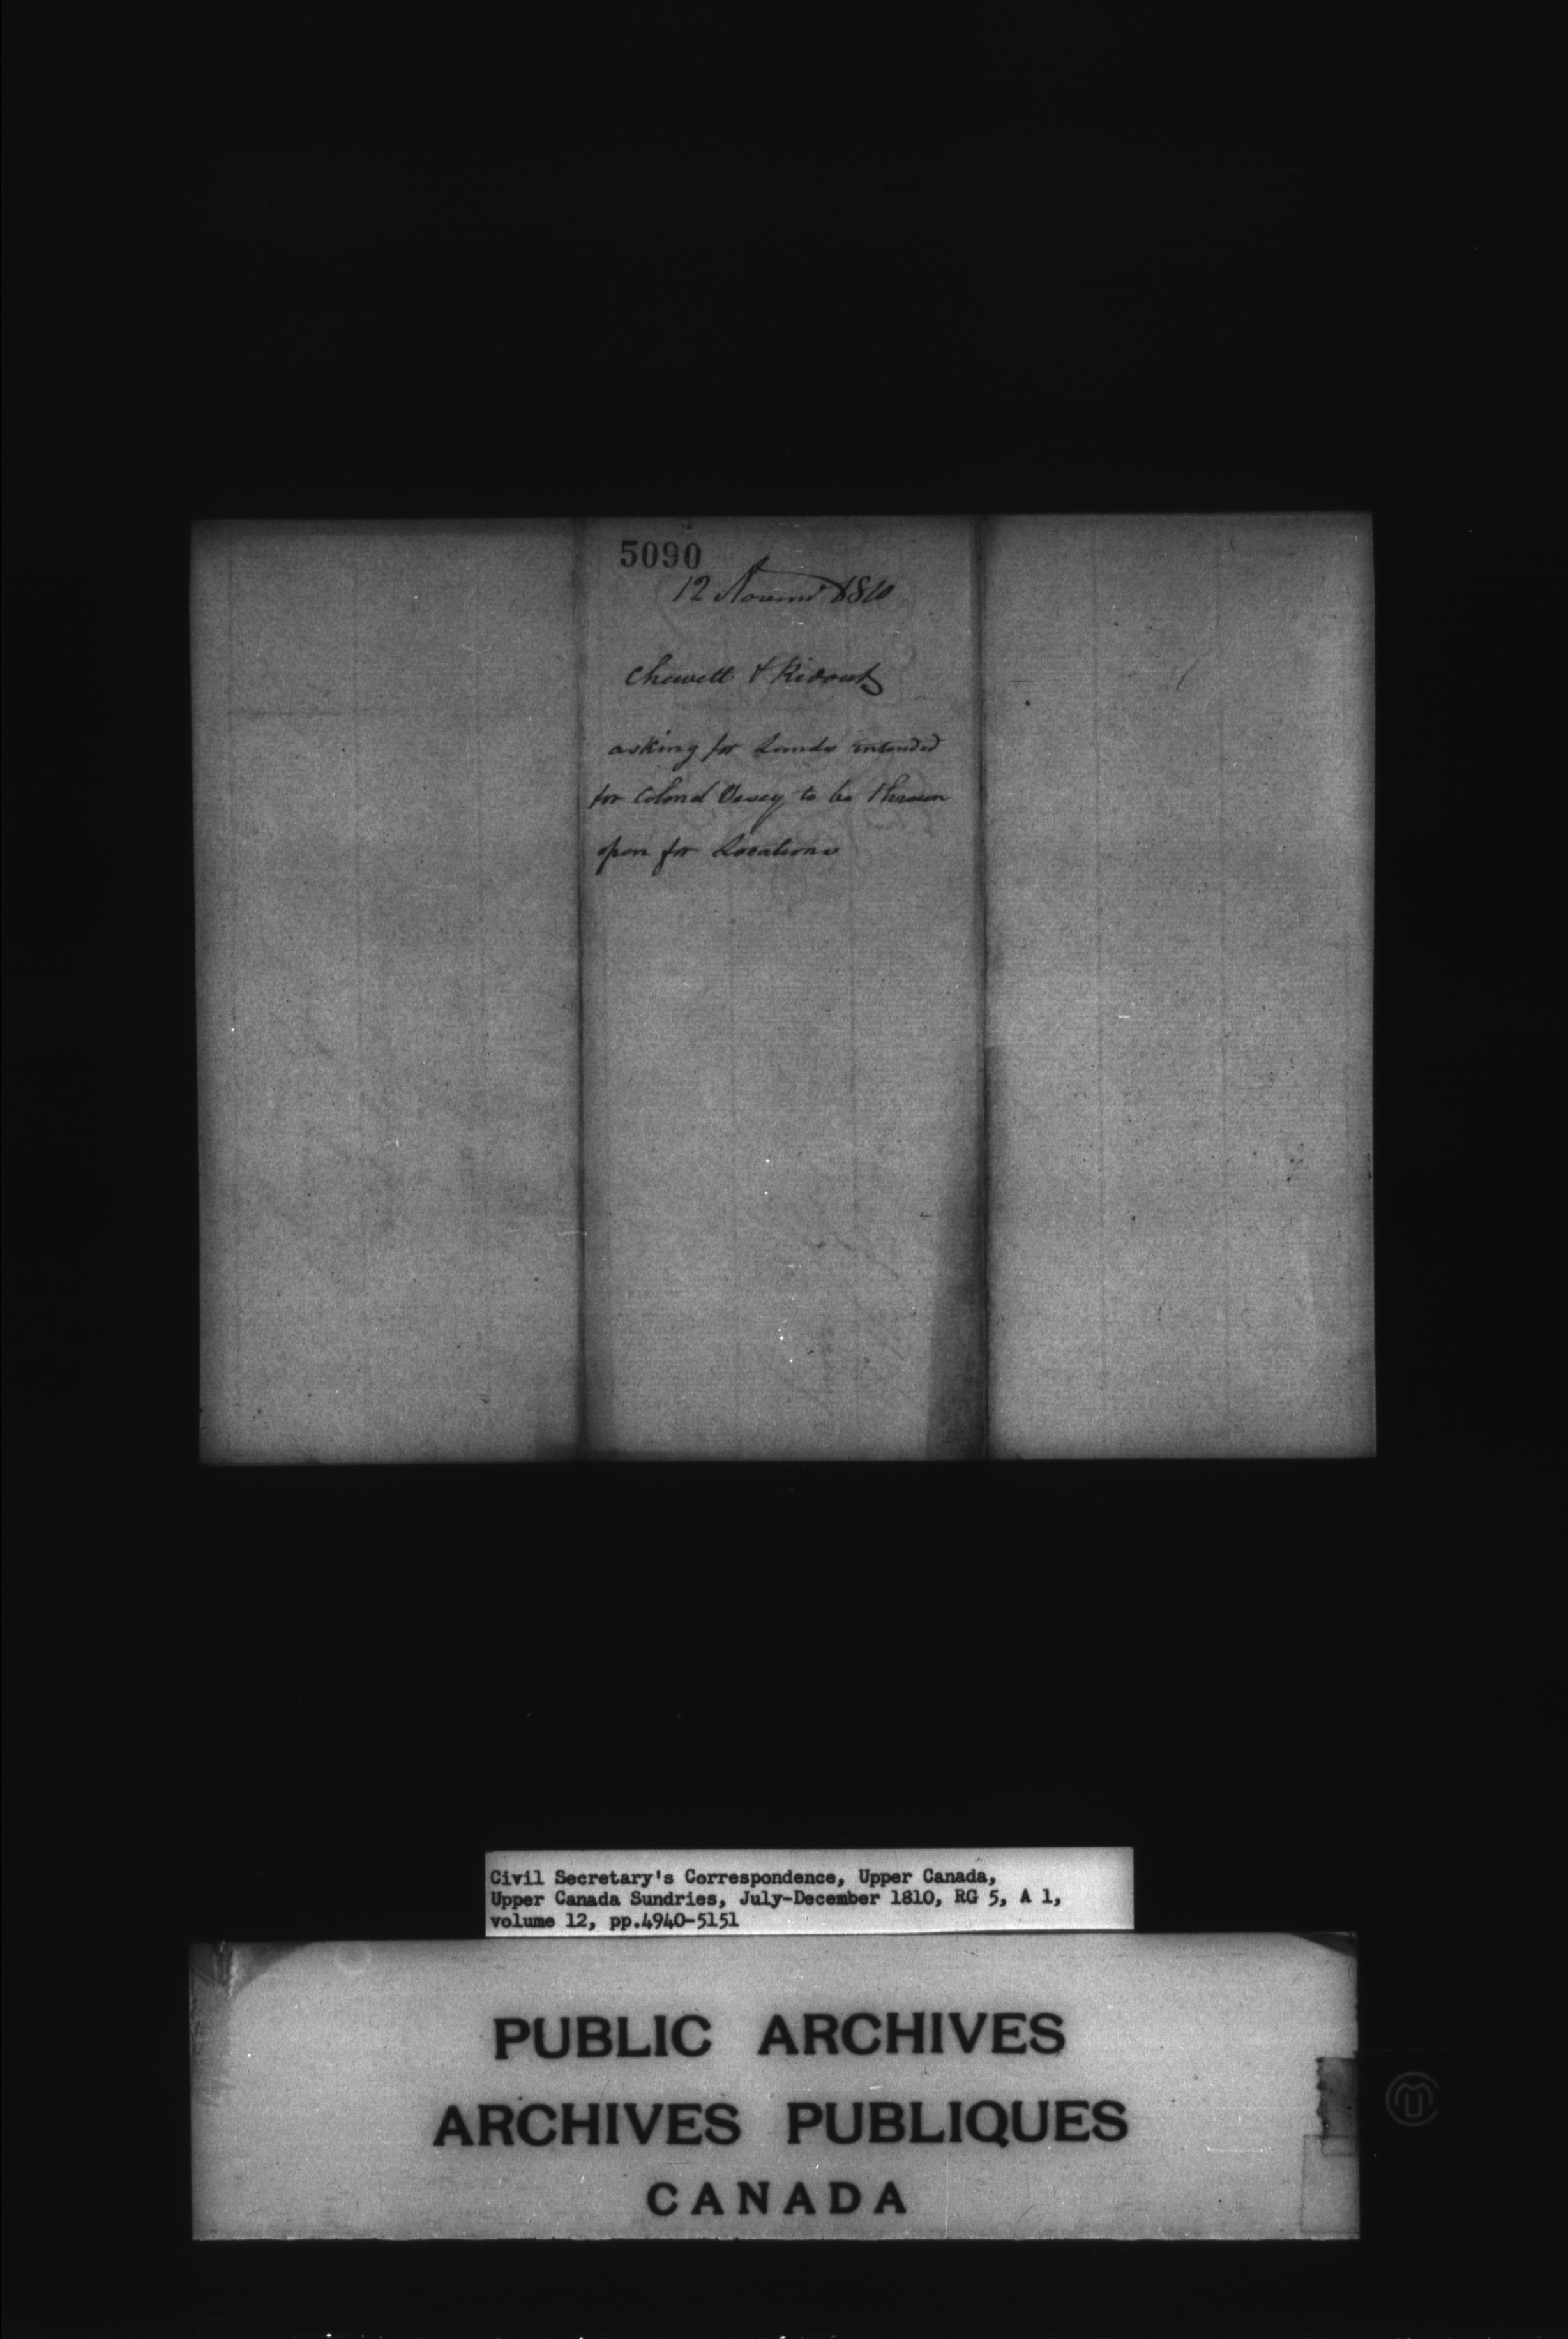 5090
12 Novemr 1810
Chewett & Ridout
asking for Lands intended
for Colonel Vesey to be thrown
open for Locations
Civil Secretary's Correspondence, Upper Canada,
Upper Canada Sundries, July-December 1810, RG 5, A 1,
volume 12, pp.4940-5151
PUBLIC ARCHIVES
ARCHIVES PUBLIQUES
CANADA